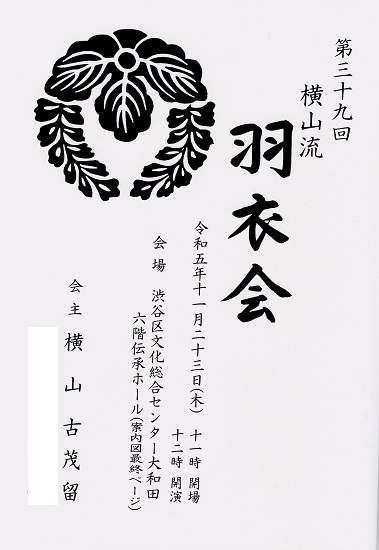 第三十九回
横山流
羽衣会
令和五年十一月二十三日(木)
十一時 開場
十二時 開演
会場 渋谷区文化総合センター大和田
六階伝承ホール(案内図最終ページ)
会主 横山古茂留